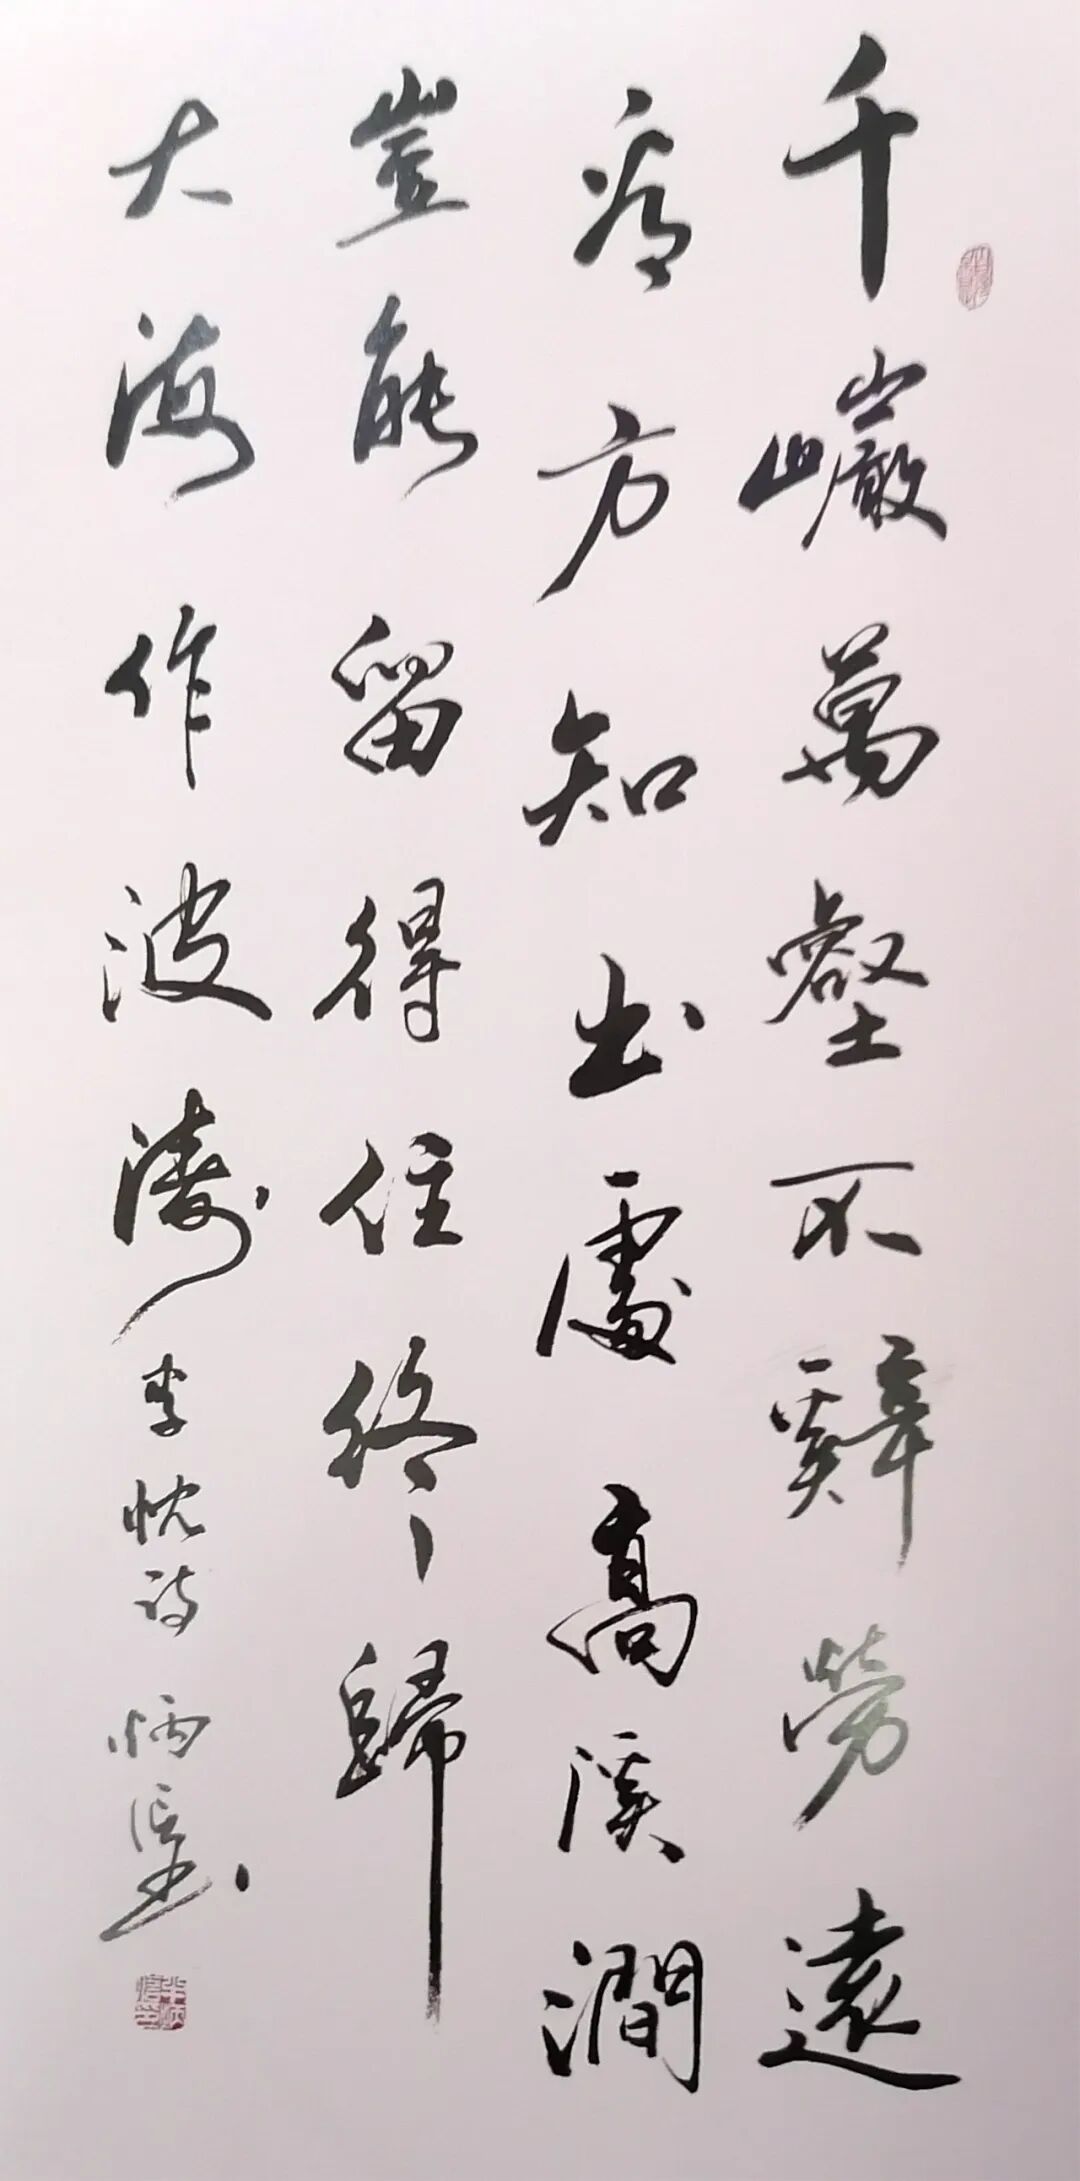 千巖萬壑不辭勞遠
看方知出處高溪澗
豈能留得住終歸
大海作波濤 李忱诗 炳